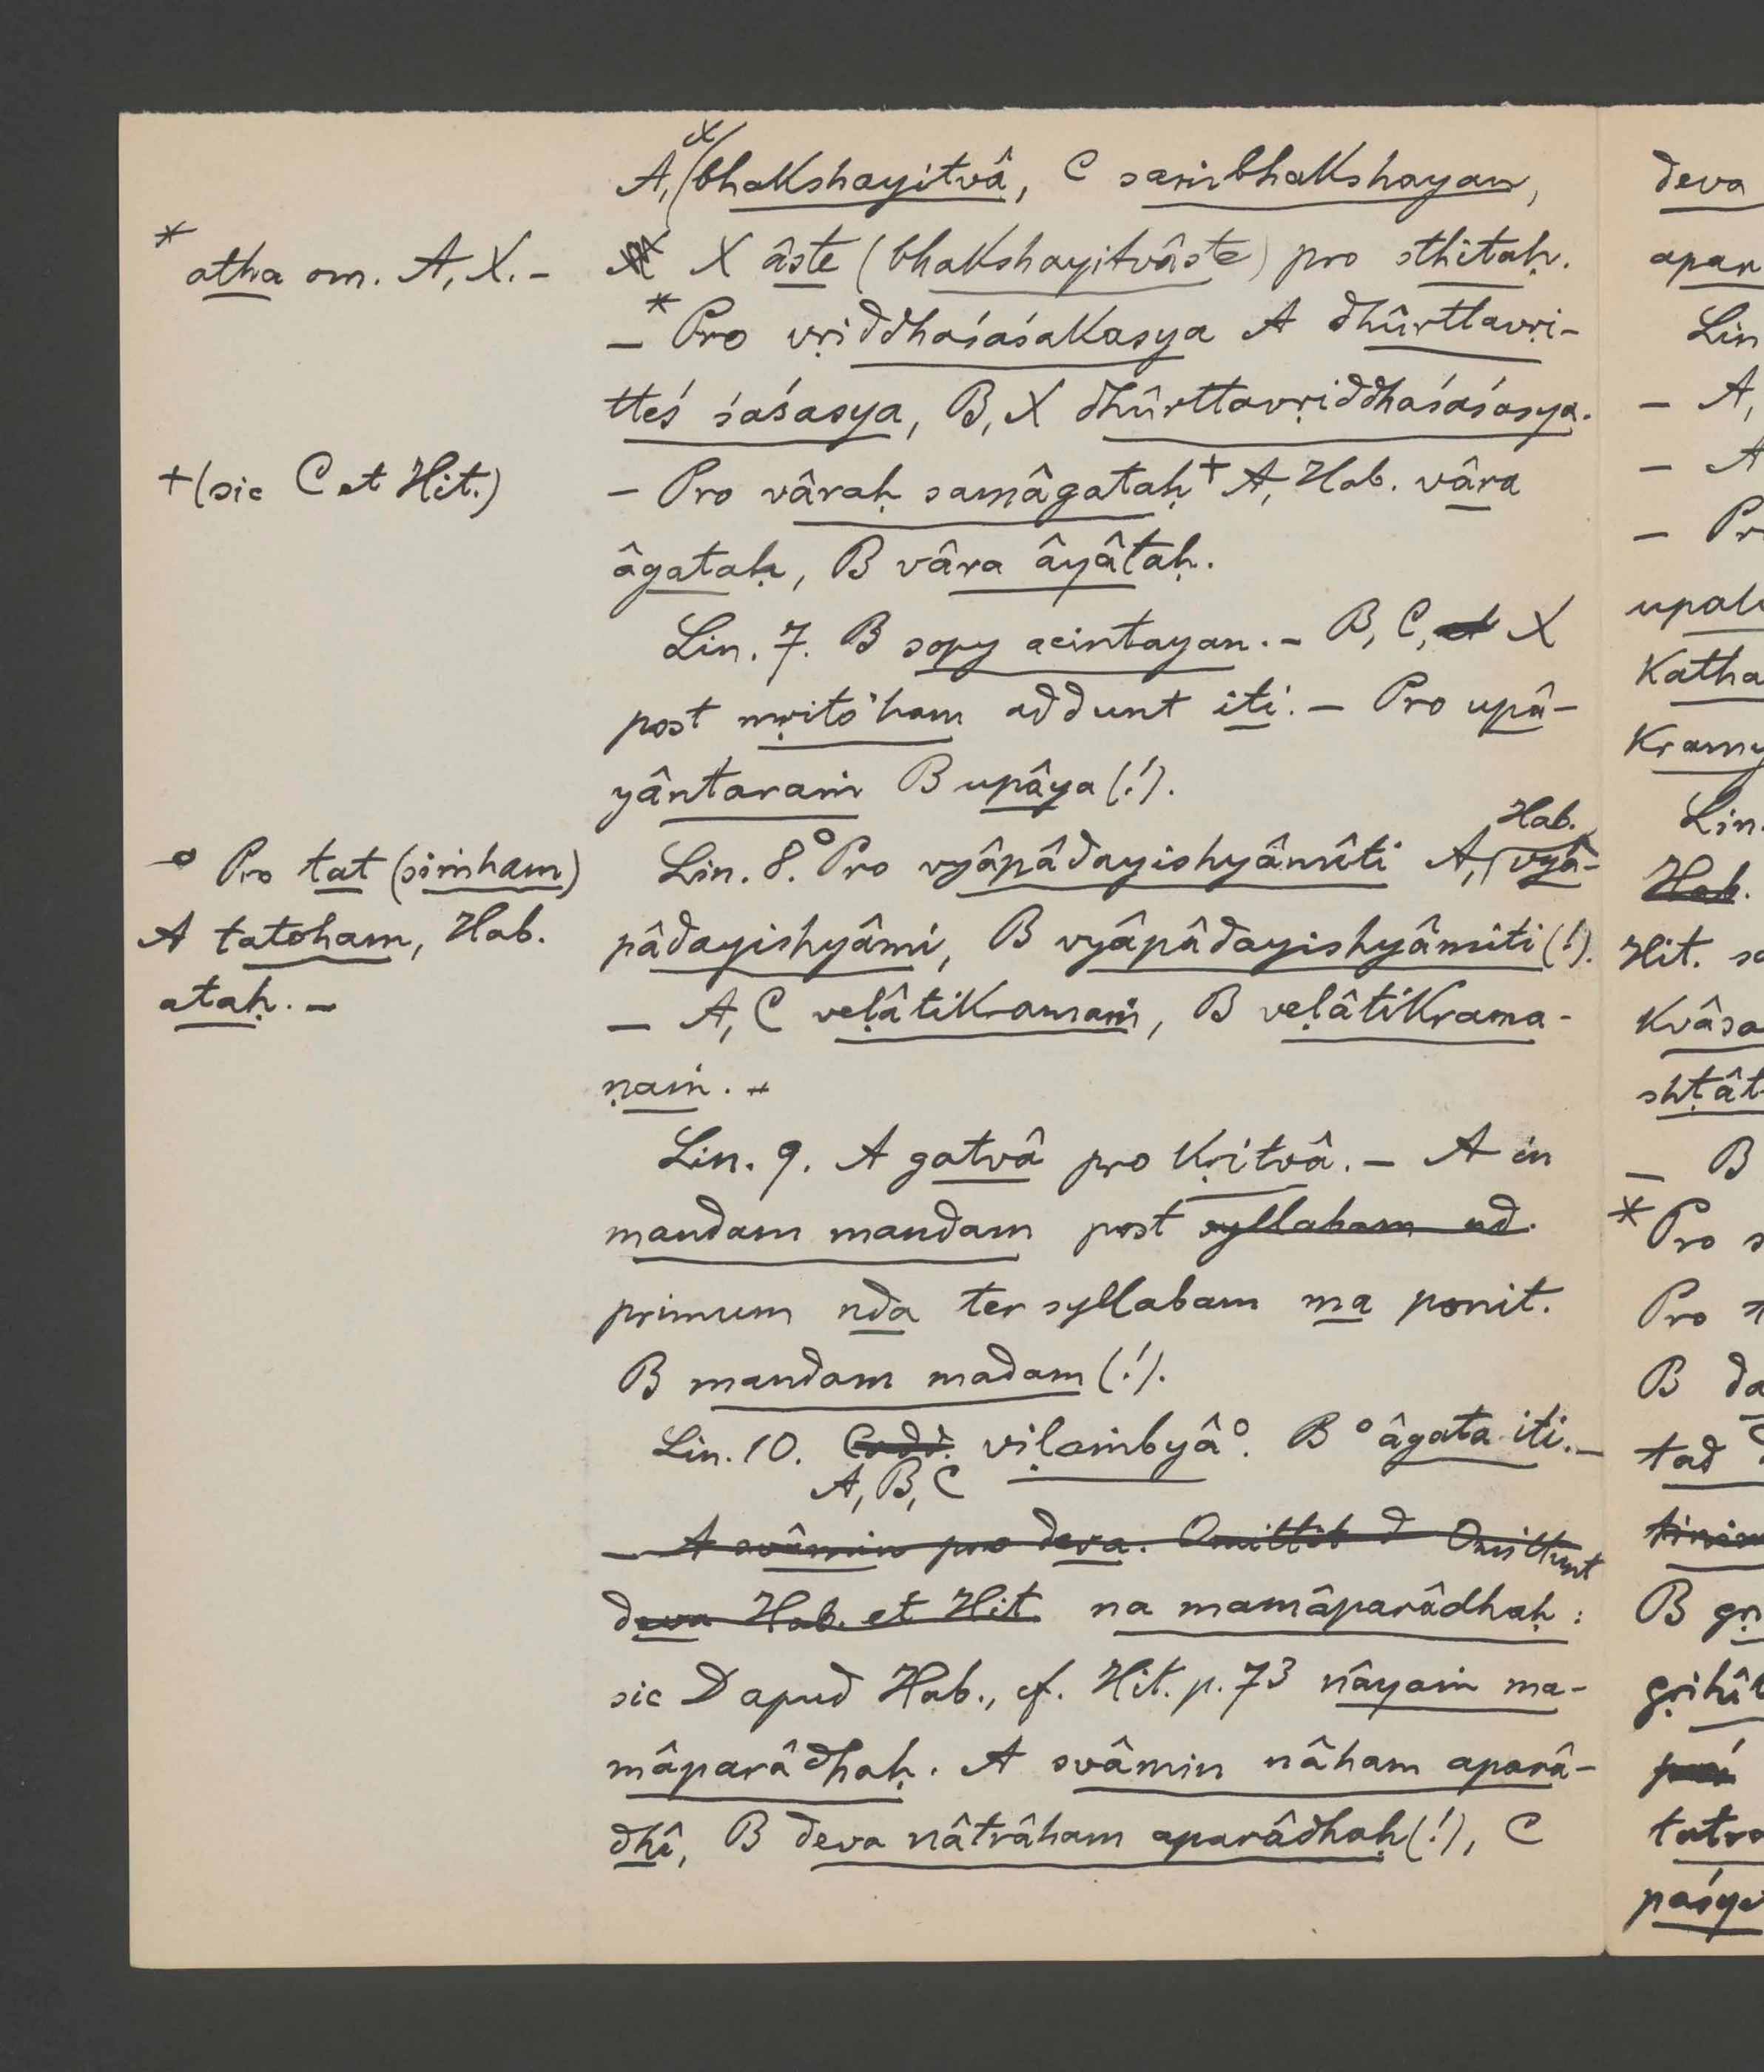 A, X bhakshayitvâ, C saṁbhakshayan,
X âste (bhakshayitvâste) pro sthitaḥ.
* atha om. A, X. –
– * Pro vṛiddhaśaśakasya A dhûrttavṛi-
tteś śaśasya, B, X dhûrttavṛiddhaśaśasya.
– Pro vâraḥ samâgataḥ + A, Hab. vâra
+ (sic C et Hit.)
âgataḥ, B vâra âyâtaḥ.
Lin. 7. B sopy acintayan. – B, C, et X
post mṛito'ham addunt iti. – Pro upâ-
yântaraṁ B upâya (!).
Lin. 8. ° Pro vyâpâdayishyâmîti A, Hab. vyâ-
pâdayishyâmi, B vyâpâdayishyâmiti (!).
° Pro tat (siṁham)
A tatoham, Hab.
ataḥ. –
– A, C veḷâtikramaṁ, B veḷâtikrama-
ṇaṁ. –
Lin. 9. A gatvâ pro kṛitvâ. – A in
mandam mandam post syllabam nd.
primum nda ter syllabam ma ponit.
B mandam madam (!).
Lin. 10. Codd. A, B, C viḷaṁbyâ°. B °âgata iti. –
– A svâmin pro deva. Omittit d Omittunt
deva Hab. et Hit. na mamâparâdhaḥ :
sic D apud Hab., cf. Hit. p. 73 nâyaṁ ma-
mâparâdhaḥ. A svâmin nâham aparâ-
dhî, B deva nâtrâham aparâdhaḥ (!), C
deva
apar
Lin
– A,
– A
– Pr
upal
katha
kram
Lin.
Hab.
Hit. sa
kvâsa
shṭât
– B
* Pro s
Pro
B da
tad
B gṛ
gṛihî
tatra
paśy